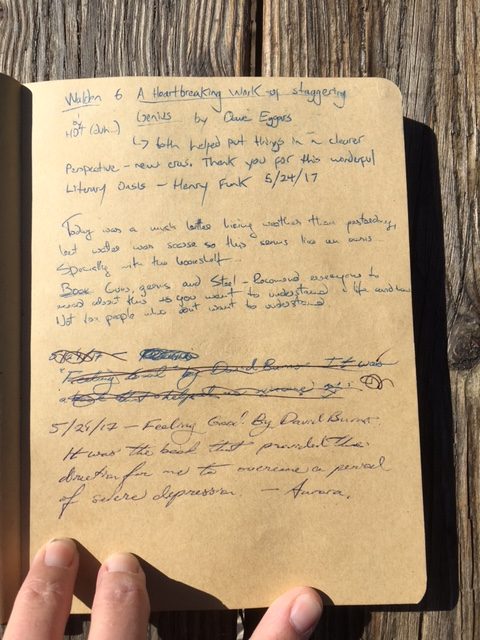 Walden & A Heartbreaking Work of Staggering
by HDT (duh...) Genius by Dave Eggers
↳ both helped put things in a clearer
Perspective - new eras. Thank you for this wonderful
Literary Oasis - Henry Funk 5/24/17
Today was a much better hiking weather than yesterday,
but water was scarse so this seems like an oasis
Specially with the bookshelf...
Book Guns, germs and Steel - Recomend everyone to
read about this is you want to understand life and
Not for people who dont want to understand
"Feeling Good" by David Burns It was
a book that helped
5/29/17 - Feeling Good! By David Burns.
It was the book that provided the
direction for me to overcome a period
of severe depression - Aurora.